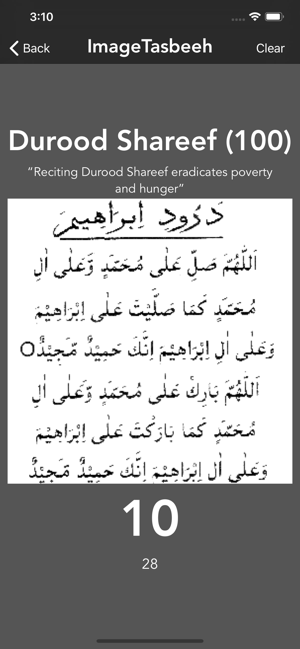 3:10
Back
ImageTasbeeh
Clear
Durood Shareef (100)
“Reciting Durood Shareef eradicates poverty
and hunger”
دَرُود اِبرَاهِيم
اَللّٰهُمَّ صَلِّ عَلٰى مُحَمَّدٍ وَّعَلٰى اٰلِ
مُحَمَّدٍ كَمَا صَلَّيْتَ عَلٰى اِبْرَاهِيْمَ
وَعَلٰى اٰلِ اِبْرَاهِيْمَ اِنَّكَ حَمِيْدٌ مَّجِيْدٌ○
اَللّٰهُمَّ بَارِكْ عَلٰى مُحَمَّدٍ وَّعَلٰى اٰلِ
مُحَمَّدٍ كَمَا بَارَكْتَ عَلٰى اِبْرَاهِيْمَ
وَعَلٰى اٰلِ اِبْرَاهِيْمَ اِنَّكَ حَمِيْدٌ مَّجِيْدٌ
10
28